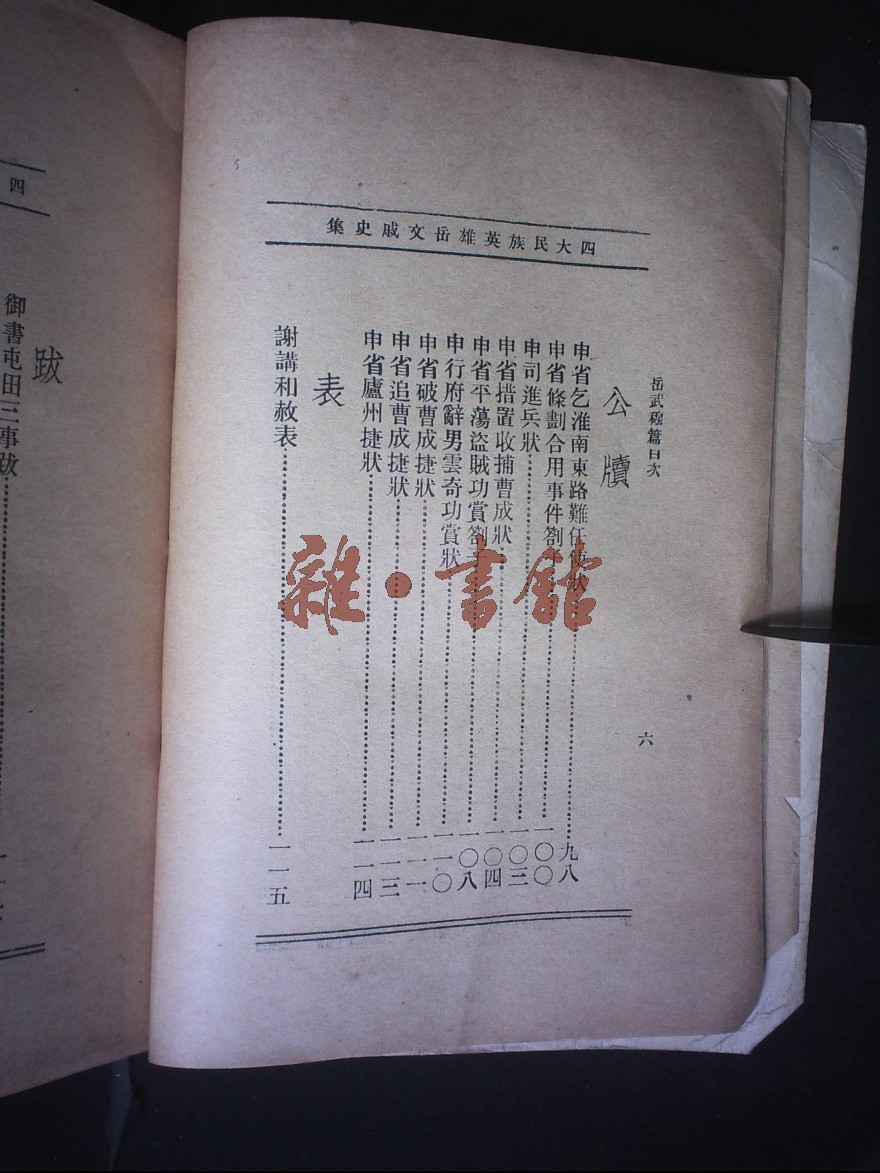 四大民族英雄岳文戚史集
岳武穆篇目次
六
公牘
申省乞淮南東路難任使狀……九八
申省條劃合用事件劄子……一〇〇
申司進兵狀……一〇三
申省措置收捕曹成狀……一〇四
申省平蕩盜賊功賞劄子……一〇八
申行府辭男雲奇功賞狀……一一〇
申省破曹成捷狀……一一一
申省追曹成捷狀……一一三
申省廬州捷狀……一一四
表
謝講和赦表……一一五
四
跋
御書屯田三事跋
雜·書館